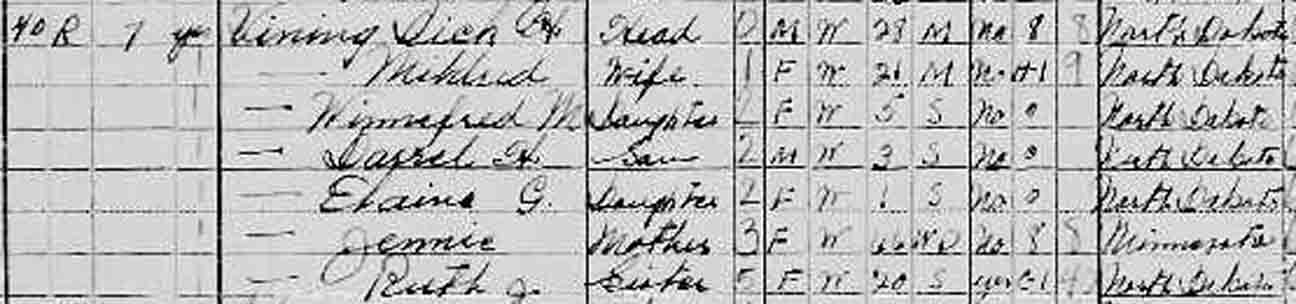 40 R 7 yes Vining Dick H. Head 0 M W 28 M No 8 8 North Dakota
— Mildred Wife 1 F W 21 M No H1 9 North Dakota
— Winnafred M Daughter 2 F W 5 S No 0 North Dakota
— Darrel H. Son 2 M W 3 S No 0 North Dakota
— Elaine G. Daughter 2 F W 1 S No 0 North Dakota
— Jennie Mother 3 F W WD No 8 8 Minnesota
— Ruth J. Sister 5 F W 20 S yes C1 North Dakota